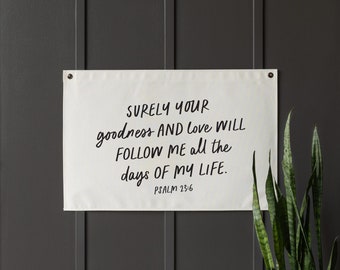 SURELY YOUR
goodness AND love WILL
FOLLOW ME all the
days OF MY LIFE.
PSALM 23:6